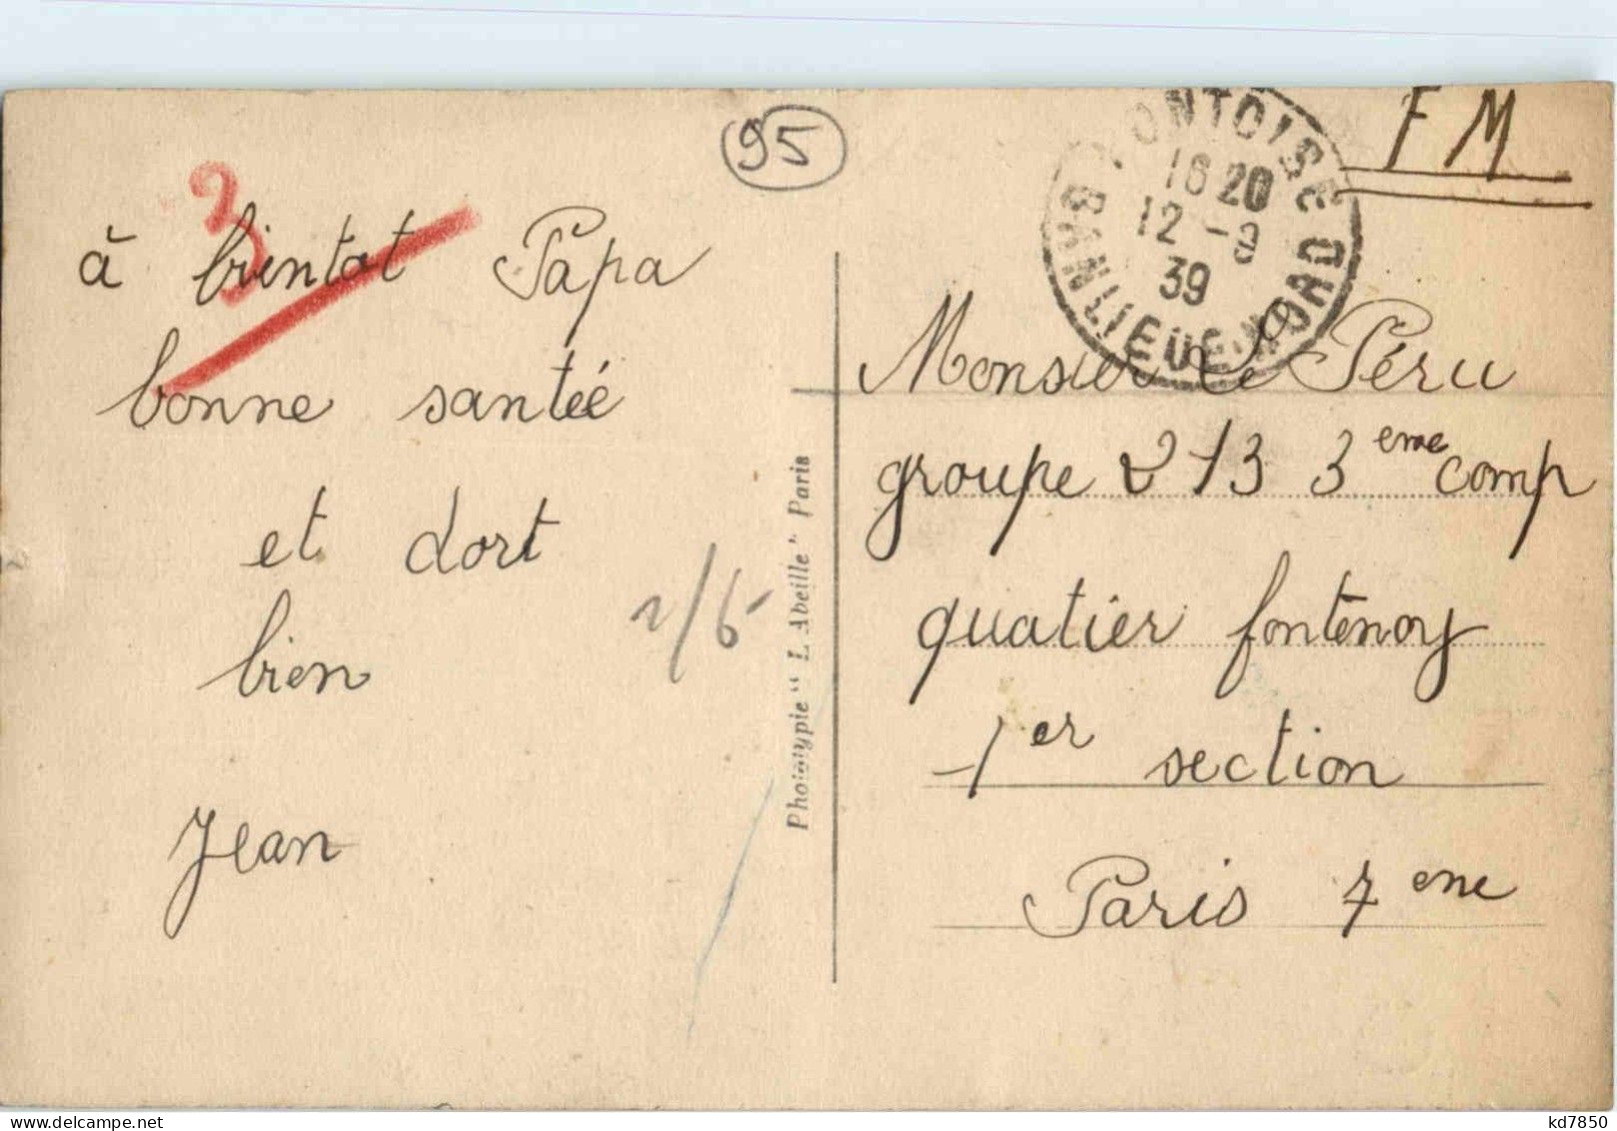 95
à bientot Papa
bonne santée
et dort
bien
Jean
3
2/6
Phototypie "L'Abeille" Paris
PONTOISE
BANLIEUE-NORD
16 20
12 - 9
39
F M
Monsieur Le Péru
groupe 213 3eme comp
quatier fontenoy
1er section
Paris 7eme
kd7850